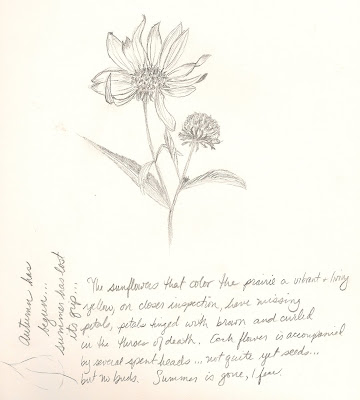 Autumn has
begun...
summer has lost
its grip...
The sunflowers that color the prairie a vibrant + living
yellow, on closer inspection, have missing
petals, petals tinged with brown and curled
in the throes of death. Each flower is accompanied
by several spent heads... not quite yet seeds...
but no buds. Summer is gone, I fear.